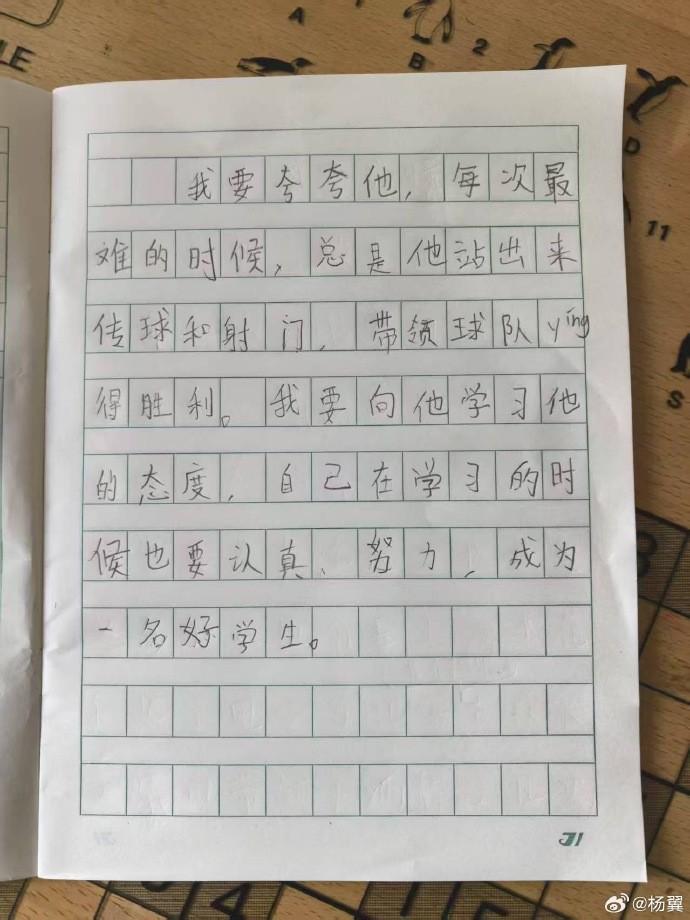 我要夸夸他，每次最
难的时候，总是他站出来
传球和射门，带领球队yíng
得胜利。我要向他学习他
的态度，自己在学习的时
候也要认真、努力，成为
一名好学生。
31
LE
A
2
B
D
11
S
@杨翼